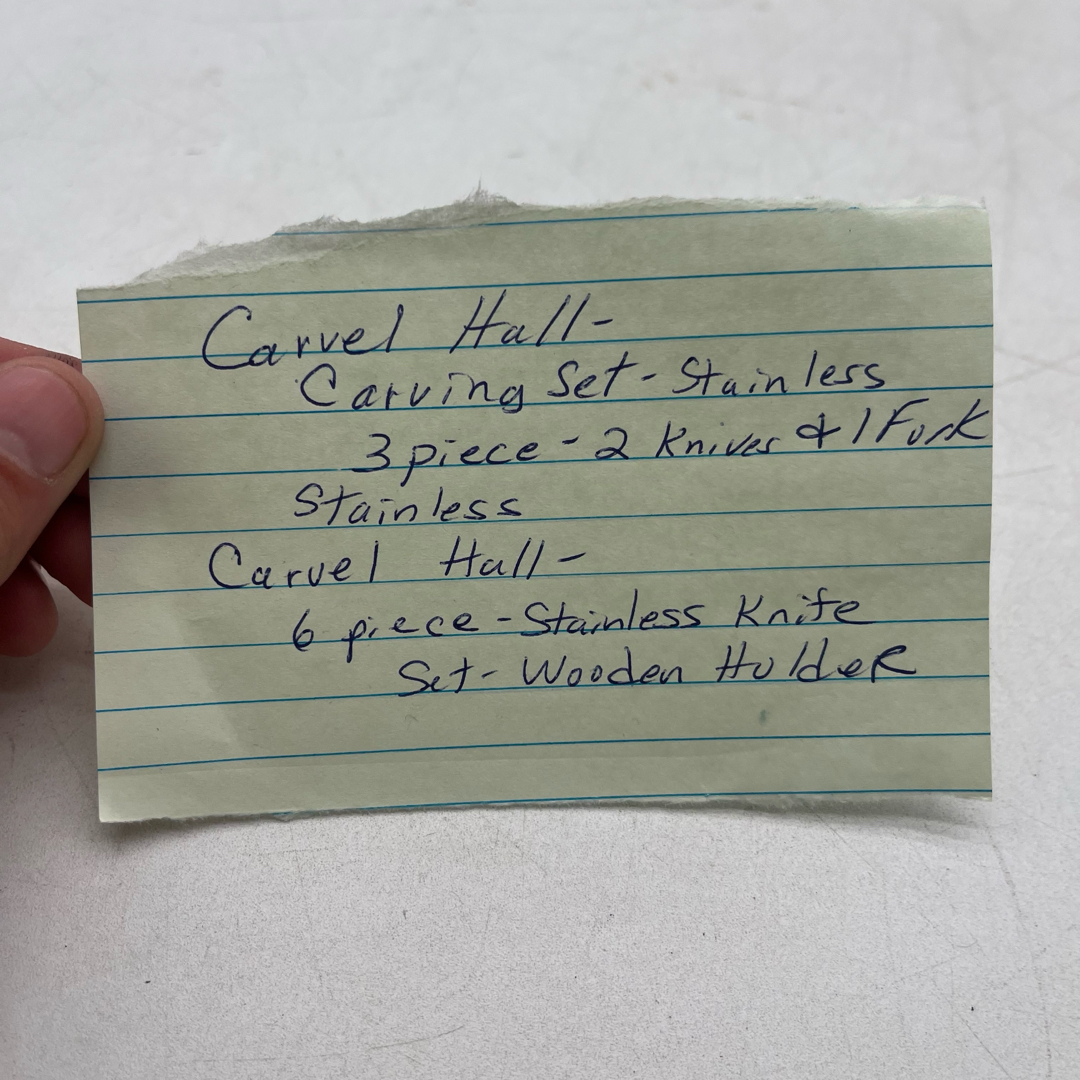 Carvel Hall-
Carving Set - Stainless
3 piece - 2 Knives & 1 Fork
Stainless
Carvel Hall-
6 piece - Stainless Knife
Set - Wooden Holder